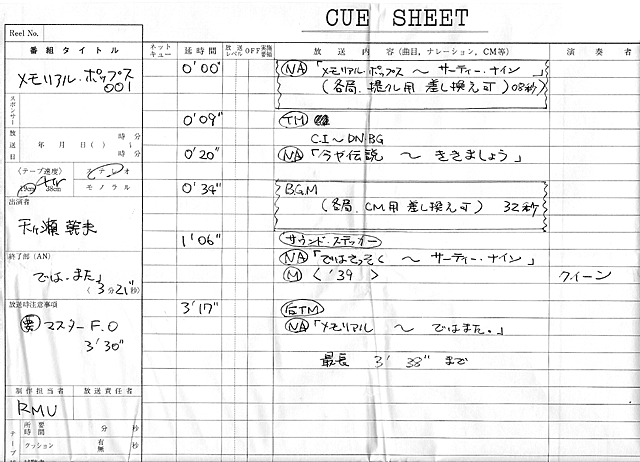 CUE SHEET
Reel No.
番組タイトル
メモリアル・ポップス
001
スポンサー
放送日 年 月 日( ) 時 分 時 分
〈テープ速度〉 ステレオ
19cm 38cm モノラル
出演者
終了部(AN)
では、また」
〈3分21秒〉
放送時注意事項
マスターF.O
3'30"
制作担当者 放送責任者
RMU
所要時間 分 秒
クッション 有 無 秒
ネットキュー 延時間 放送レベル OFF 実施要領 放送内容(曲目、ナレーション、CM等) 演奏者
0'00" NA 「メモリアル・ポップス 〜 サーティー・ナイン 」
(各局、提クレ用 差し換え可)08秒
0'09" TM
C.I〜DN・BG
0'20" NA 「今や伝説 〜 ききましょう」
0'34" BGM
(各局、CM用 差し換え可) 32秒
1'06" サウンド・ステッカー
NA 「ではさっそく 〜 サーティー・ナイン」
M 〈 '39 〉 クイーン
3'17" ETM
NA 「メモリアル 〜 ではまた。」
最長 3' 38" まで